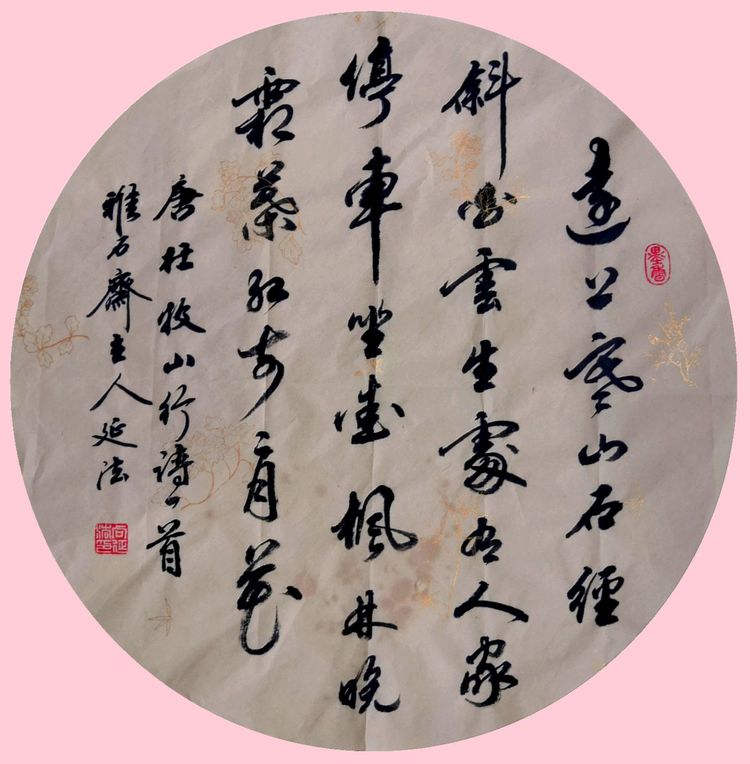 墨香
遠上寒山石經
斜白雲生處有人家
停車坐愛楓林晚
霜葉紅於二月花
唐杜牧山行詩一首
雅石齋主人延法